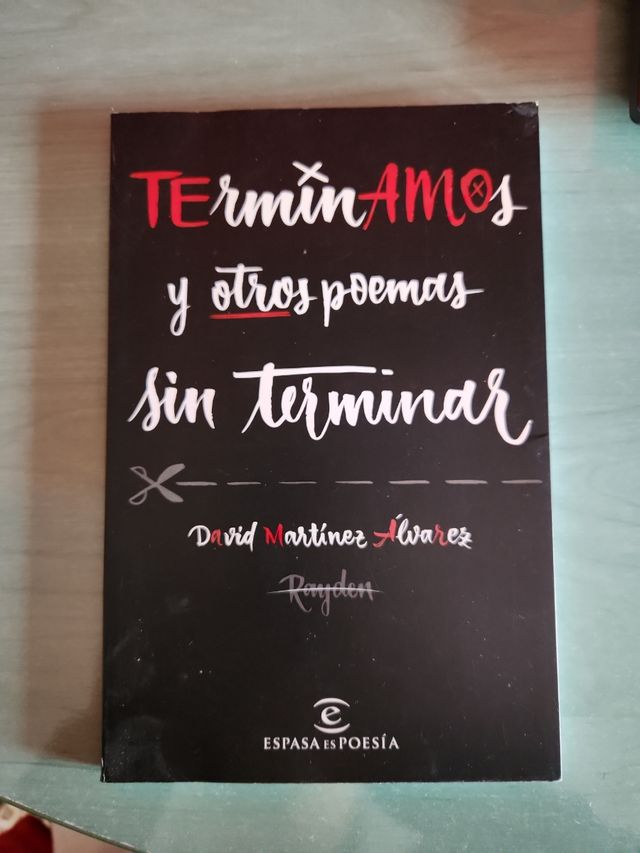 TErminAMOs
y otros poemas
sin terminar
David Martínez Álvarez
Rayden
e
ESPASA ES POESÍA